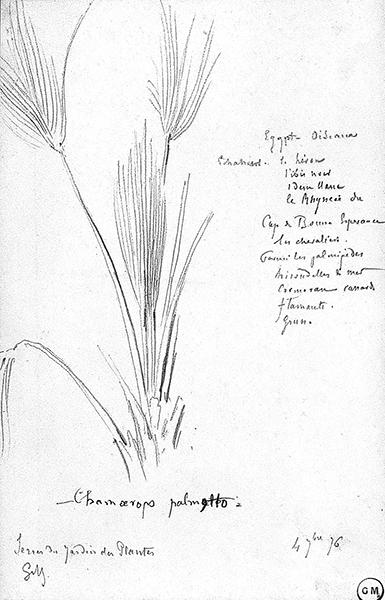 Egypte Oiseaux
Echassiers. le héron
l'ibis noir
idem blanc
le Rhyncée du
Cap de Bonne Esperance
les chevaliers.
Parmi les palmipèdes
hirondelles de mer
Cormoran canard
flamants.
Grue.
Chamærops palmetto
Serres du Jardin des Plantes
4 7bre 76
GM
GM